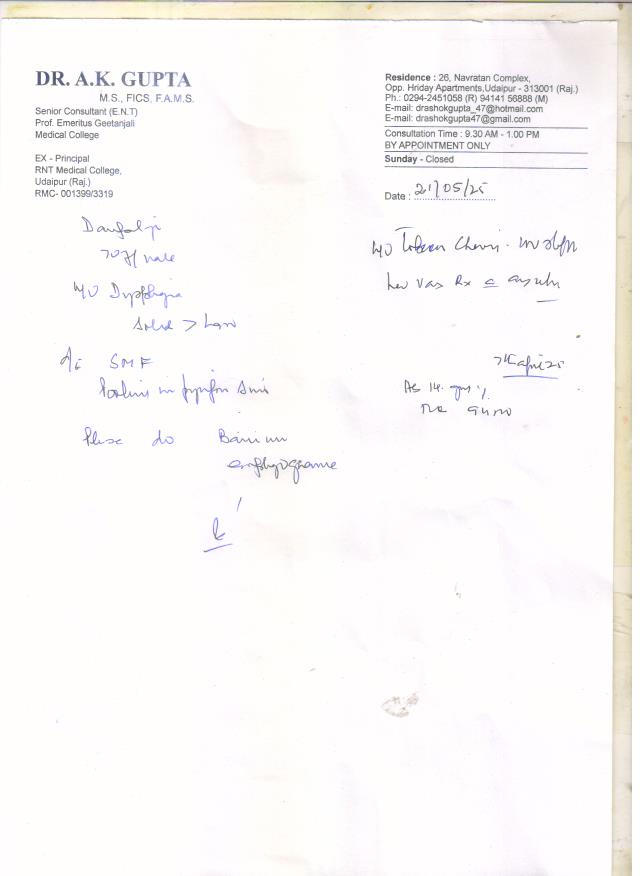 DR. A.K. GUPTA
M.S., FICS, F.A.M.S.
Senior Consultant (E.N.T)
Prof. Emeritus Geetanjali
Medical College
EX - Principal
RNT Medical College,
Udaipur (Raj.)
RMC- 001399/3319
Residence : 26, Navratan Complex,
Opp. Hriday Apartments,Udaipur - 313001 (Raj.)
Ph.: 0294-2451058 (R) 94141 56888 (M)
E-mail: drashokgupta_47@hotmail.com
E-mail: drashokgupta47@gmail.com
Consultation Time : 9.30 AM - 1.00 PM
BY APPOINTMENT ONLY
Sunday - Closed
Date : 21/05/25
70y/ male
H/O Dysphagia
Solid >
SMF
in pyriform
Please do Barium
H/O
Rx
14. gm %